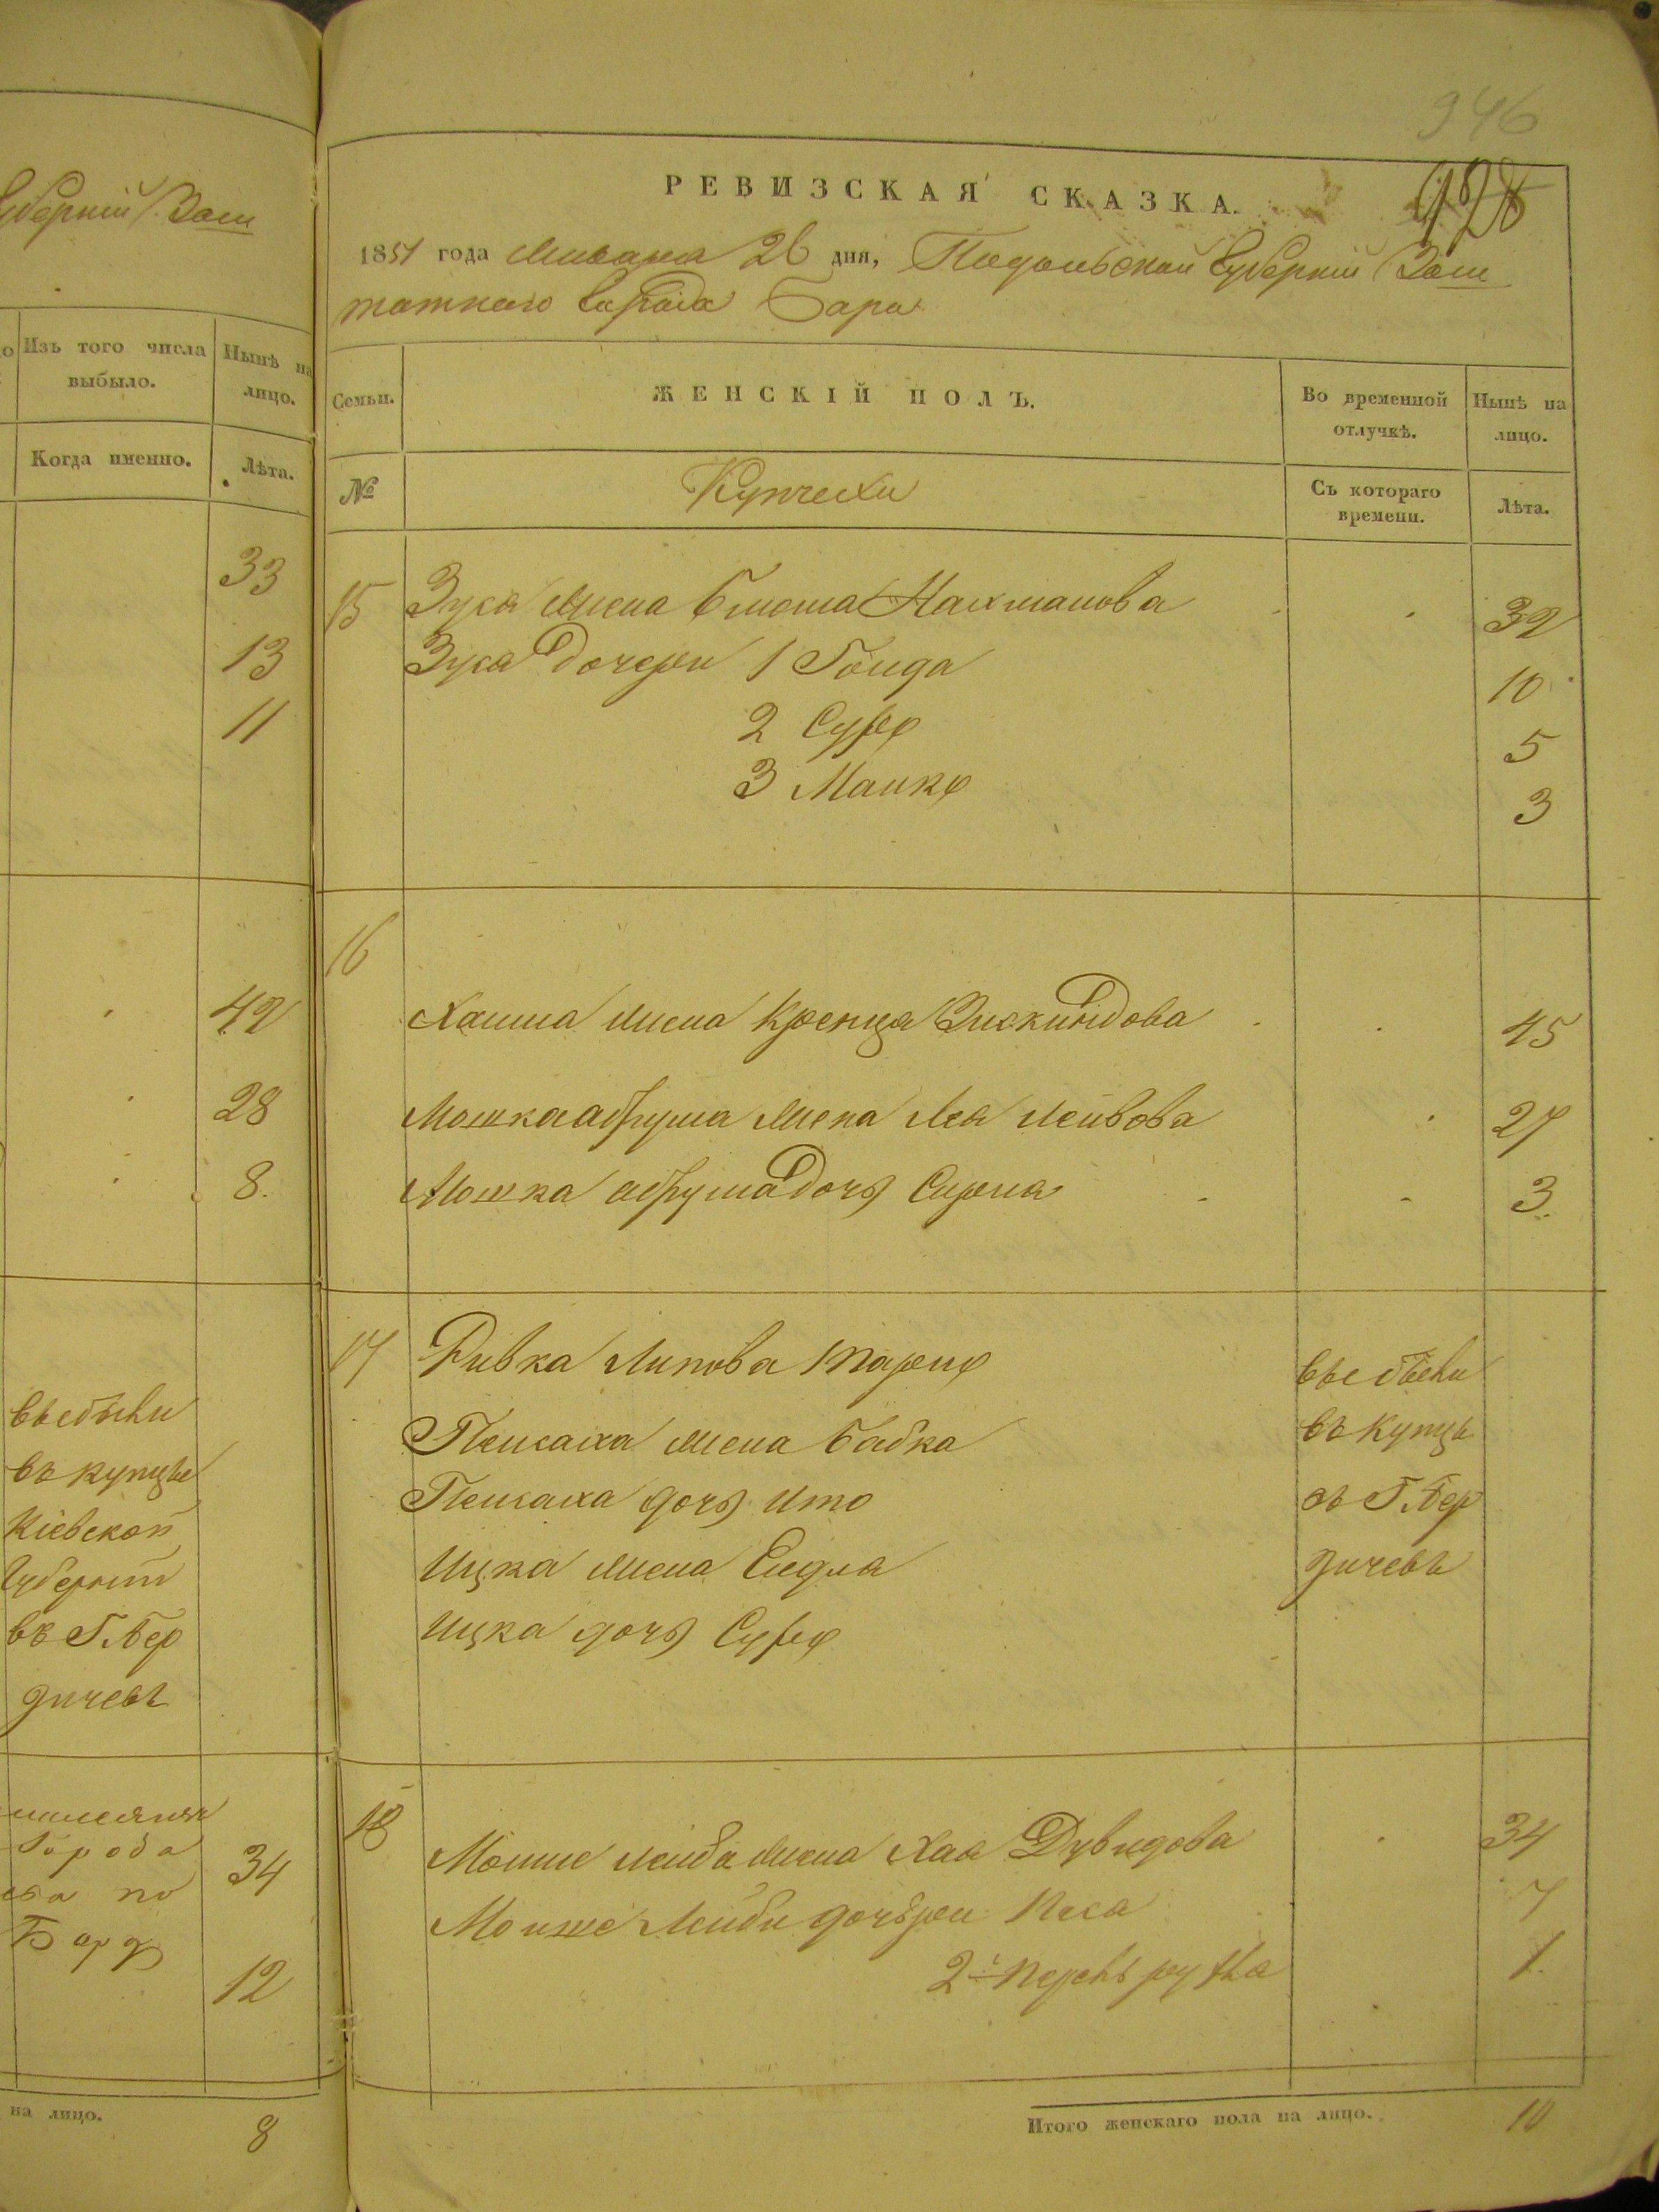 губерній Заш
Изъ того числа выбыло.
Нынѣ на лицо.
Когда именно.
Лѣта.
33
13
11
42
28
8.
въ купцы
Кіевской
Губерніи
въ Г. Бер
дичевѣ
Города
по
34
12
на лицо.
8
946
РЕВИЗСКАЯ СКАЗКА.
1851 года 26 дня, Подольской Губерніи Заш
татнаго Города Бара
Семьи.
ЖЕНСКІЙ ПОЛЪ.
Во временной отлучкѣ.
Нынѣ на лицо.
№
Купчехи
Съ котораго времени.
Лѣта.
15 Зуся жена Нахманова 32
Зуся дочери 1 Гоида 10
2 Суре 5
3 Манке 3
16
Хаима жена Креица Зискиндова 45
Мошка абрума жена Лея Лейвова 27
Мошка абрума дочь Сирена 3.
17 Ривка Липова
Пейсаха жена Бабка въ купцы
Пейсаха дочь Ито въ Г. Бер
Ицка жена Ейдля дичевѣ
Ицка дочь Суре
18
Мошше лейба жена Хая Дувидова 34
Мошше Лейби дочери Песа 7
2я 1.
Итого женскаго пола на лицо. 10